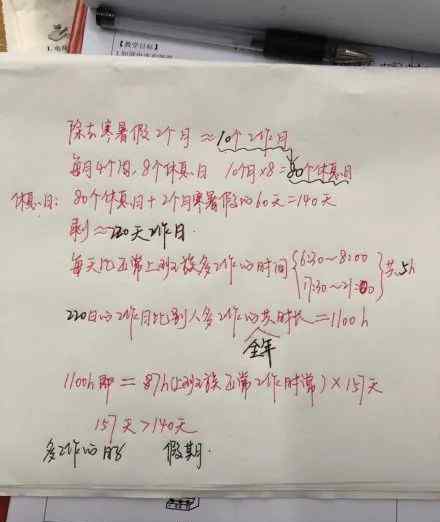 【教学目标】
除去寒暑假2个月≈10个工作月
每月4个周,8个休息日 10个月×8=80个休息日
休息日: 80个休息日+2个月寒暑假的60天=140天
剩≈220天工作日.
每天比正常上班族多工作的时间{6:30~8:00 17:30~21:00}共5h
220日的工作日比别人多工作的共时长=1100h
全年
1100h即=87h(上班族正常工作时常)×157天
157天>140天
多工作的时 假期.